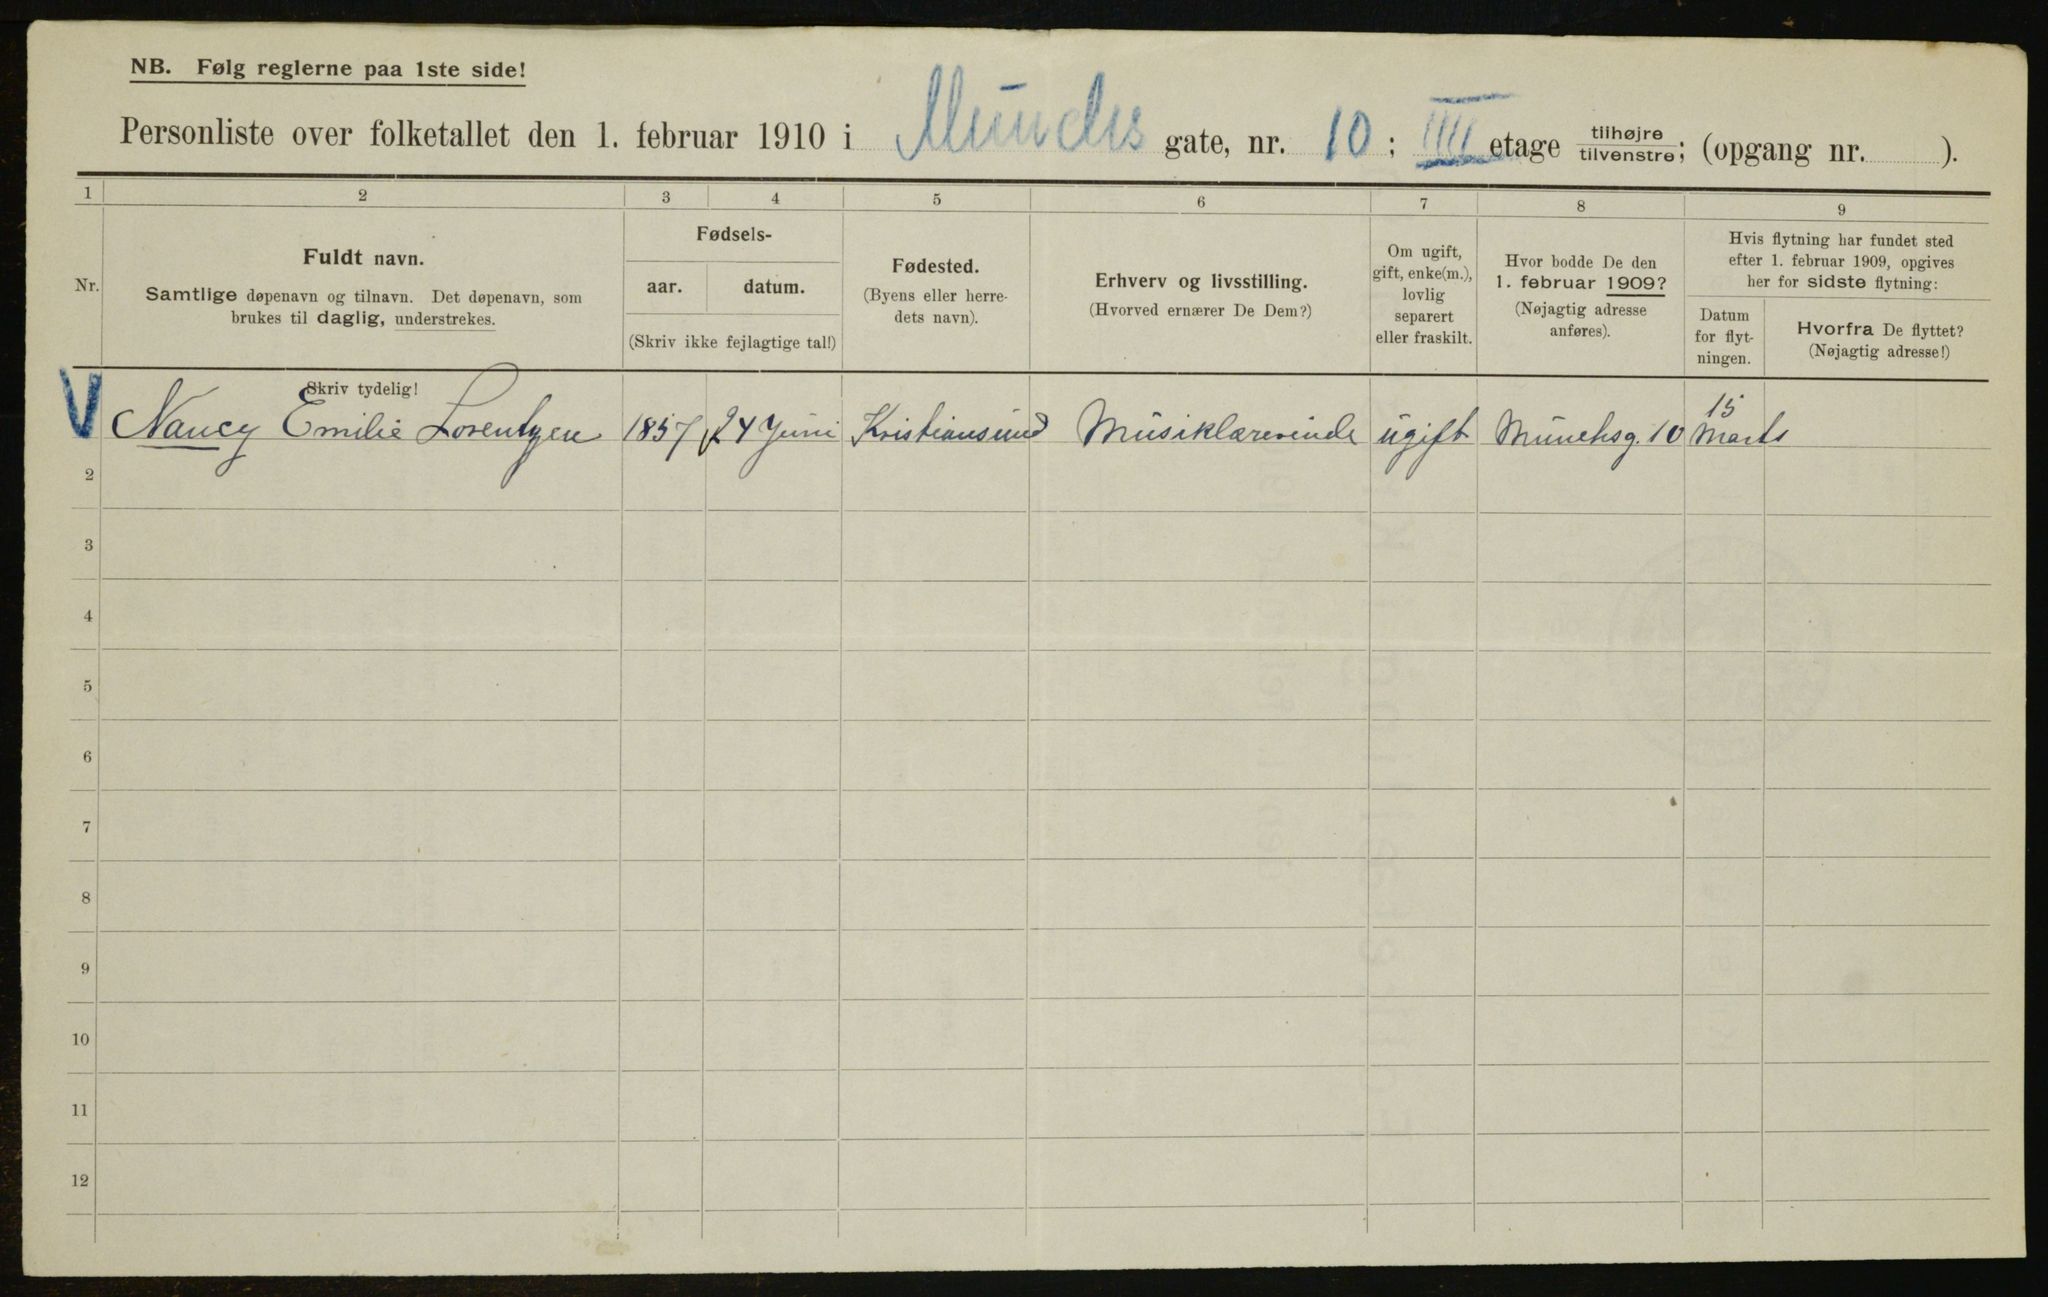 NB. Følg reglerne paa 1ste side!
Personliste over folketallet den 1. februar 1910 i Munchs gate, nr. 10; IIII etage tilhøjre/tilvenstre; (opgang nr. ).
1 2 3 4 5 6 7 8 9
Nr.
Fuldt navn.
Samtlige døpenavn og tilnavn. Det døpenavn, som
brukes til daglig, understrekes.
Skriv tydelig!
Fødsels-
aar. datum.
(Skriv ikke fejlagtige tal!)
Fødested.
(Byens eller herre-
dets navn).
Erhverv og livsstilling.
(Hvorved ernærer De Dem?)
Om ugift,
gift, enke(m.),
lovlig
separert
eller fraskilt.
Hvor bodde De den
1. februar 1909?
(Nøjagtig adresse
anføres).
Hvis flytning har fundet sted
efter 1. februar 1909, opgives
her for sidste flytning:
Datum
for flyt-
ningen.
Hvorfra De flyttet?
(Nøjagtig adresse!)
V Nancy Emilie Lorentzen 1857 24 Juni Kristiansund Musiklærerinde ugift Munchsg. 10 15 Marts
2
3
4
5
6
7
8
9
10
11
12